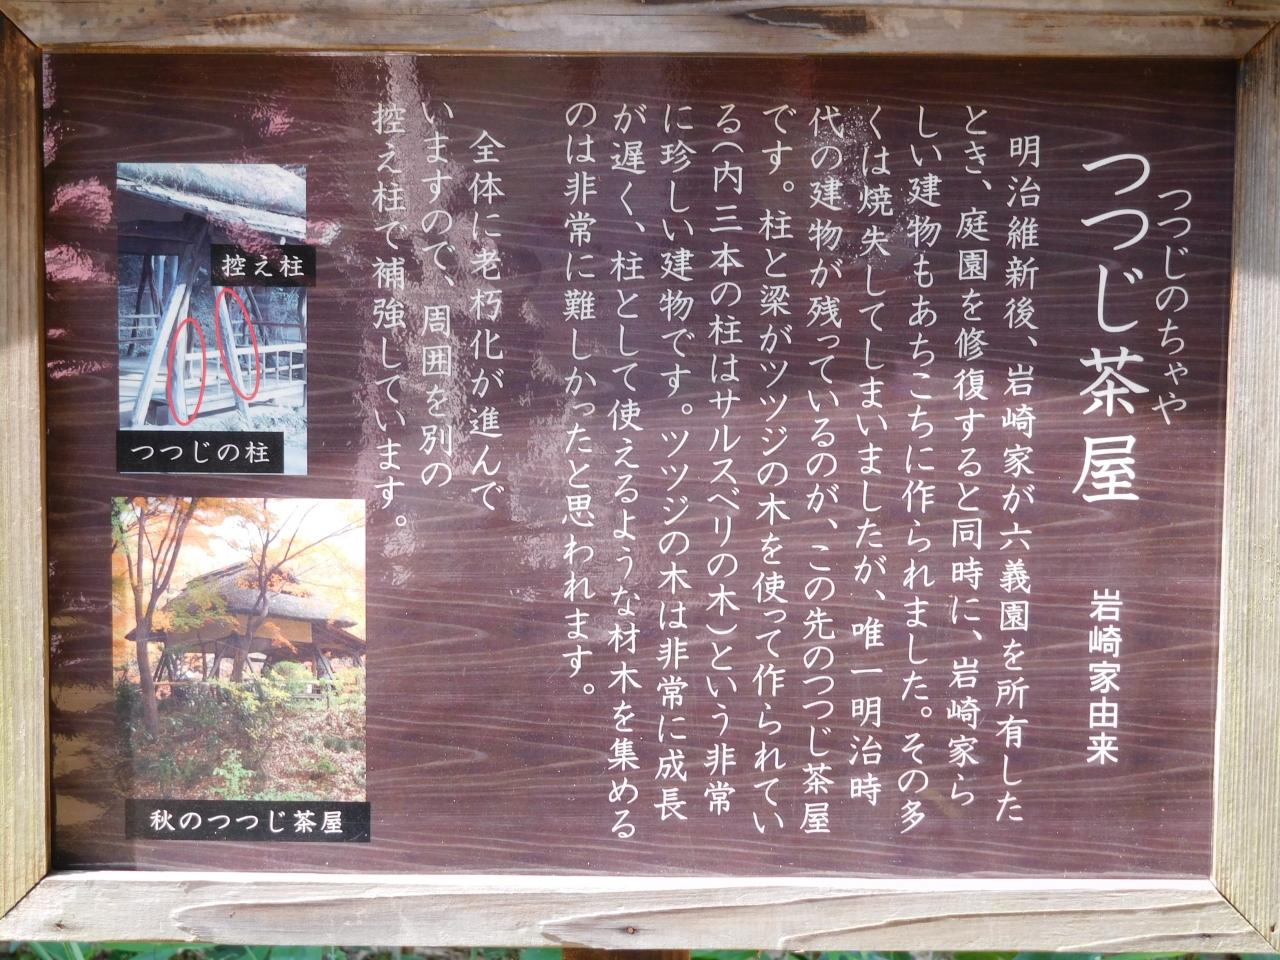 つつじのちゃや
つつじ茶屋
岩崎家由来
明治維新後、岩崎家が六義園を所有した
とき、庭園を修復すると同時に、岩崎家ら
しい建物もあちこちに作られました。その多
くは焼失してしまいましたが、唯一明治時
代の建物が残っているのが、この先のつつじ茶屋
です。柱と梁がツツジの木を使って作られてい
る(内三本の柱はサルスベリの木)という非常
に珍しい建物です。ツツジの木は非常に成長
が遅く、柱として使えるような材木を集める
のは非常に難しかったと思われます。
全体に老朽化が進んで
いますので、周囲を別の
控え柱で補強しています。
控え柱
つつじの柱
秋のつつじ茶屋